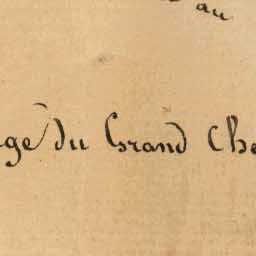 au
age du Grand Che